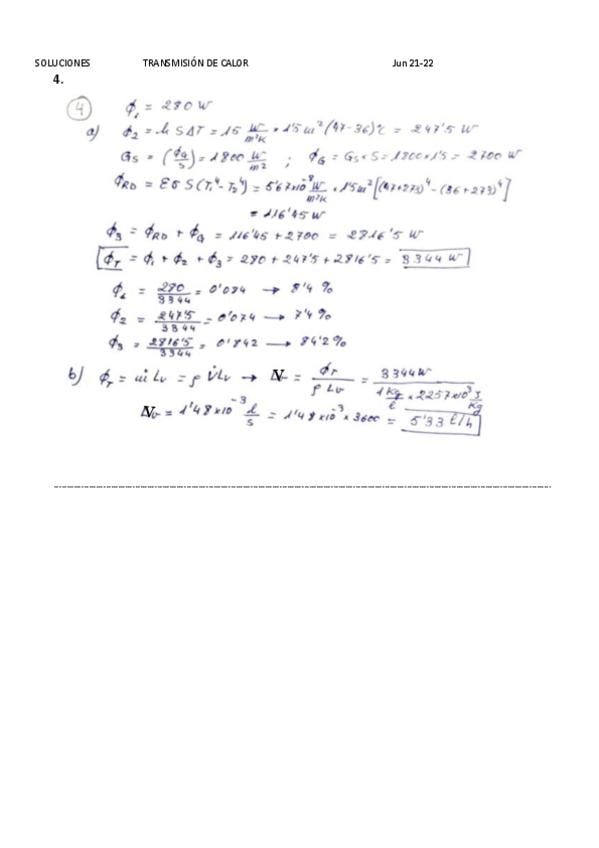 SOLUCIONES TRANSMISIÓN DE CALOR Jun 21-22
4.
④ ϕ₁ = 280 W
a) ϕ₂ = h S ΔT = 15 W/m²K × 1'5 m² (47-36)°C = 247'5 W
Gs = (ϕG/S) = 1800 W/m² ; ϕG = Gs × S = 1800×1'5 = 2700 W
ϕRD = εσ S (T₁⁴ - T₂⁴) = 5'67×10⁻⁸ W/m²K × 1'5 m² [(47+273)⁴ - (36+273)⁴]
= 116'45 W
ϕ₃ = ϕRD + ϕG = 116'45 + 2700 = 2816'5 W
ϕT = ϕ₁ + ϕ₂ + ϕ₃ = 280 + 247'5 + 2816'5 = 3344 W
ϕ₁ = 280/3344 = 0'084 → 8'4 %
ϕ₂ = 247'5/3344 = 0'074 → 7'4 %
ϕ₃ = 2816'5/3344 = 0'842 → 84'2 %
b) ϕT = ṁ Lv = ρ V̇ Lv → Nv = ϕT/ρ Lv = 3344 W/1 Kg/l × 2257×10³ J/Kg
Nv = 1'48×10⁻³ l/s = 1'48×10⁻³ × 3600 = 5'33 l/h